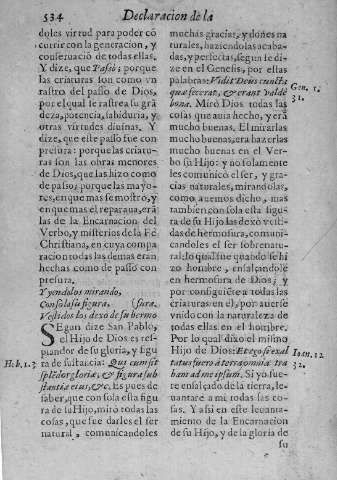 534 Declaracion de la
doles virtud para poder có
currir con la generacion, y
conseruació de todas ellas.
Y dize, que Passò; porque
las criaturas son como vn
rastro del passo de Dios,
por el qual se rastrea su grã
deza, potencia, sabiduria, y
otras virtudes diuinas. Y
dize, que este passo fue con
presura: porque las criatu-
ras son las obras menores
de Dios, que las hizo como
de passo, porque las mayo-
res, en que mas se mostro, y
en que mas el reparaua, erã
las de la Encarnacion del
Verbo, y misterios de la Fè
Christiana, en cuya compa
racion todas las demas eran
hechas como de passo con
presura.
Y yendolos mirando,
Con sola su figura, (sura,
Vestidos los dexo de su hermo
SEgun dize San Pablo,
el Hijo de Dios es res-
plandor de su gloria, y figu
Heb. 1. 3
ra de sustancia: Qui cum sit
splēdor gloriæ, & figura sub
stantiæ eius, &c. Es pues de
saber, que con sola esta figu
ra de su Hijo, mirò todas las
cosas, que fue darles el ser
natural, comunicandoles
muchas gracias, y dones na
turales, haziendolas acaba-
das, y perfectas, segun se di-
ze en el Genesis, por estas
palabras: Vidit Deus cuncta
Gen. 1.
31.
quæ fecerat, & erant valdè
bona. Mirò Dios todas las
cosas que auia hecho, y erã
mucho buenas. El mirarlas
mucho buenas, era hazerlas
mucho buenas en el Ver-
bo su Hijo: y no solamente
les comunicò el ser, y gra-
cias naturales, mirandolas,
como auemos dicho, mas
tambien con sola esta figu-
ra de su Hijo las dexò vesti-
das de hermosura, comuni-
candoles el ser sobrenatu-
ral: lo qual fue quando se hi
zo hombre, ensalçandole
en hermosura de Dios; y
por consiguiẽte a todas las
criaturas en el, por auerse
vnido con la naturaleza de
todas ellas en el hombre.
Por lo qual dixo el mismo
Hijo de Dios: Et ego si exal
Ioan. 12
32.
tatus fuero à terra omnia tra
ham ad me ipsum. Si yo fue-
re ensalçado de la tierra, le-
uantare a mi todas las co-
sas. Y assi en este leuanta-
miento de la Encarnacion
de su Hijo, y de la gloria de
su